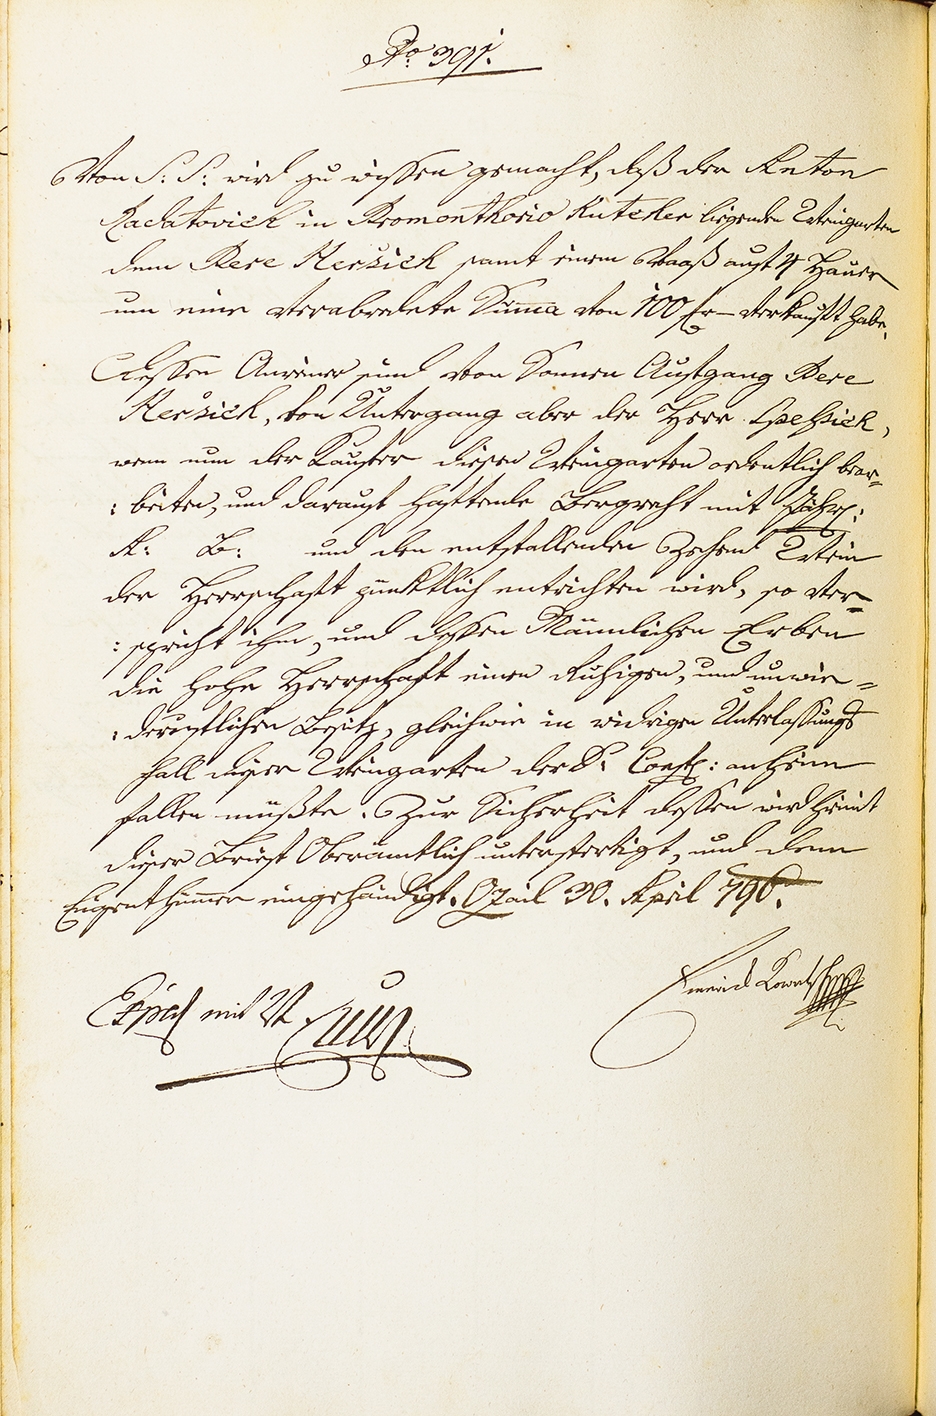 No. 391.
Von S: S: wird zu wissen gemacht, daß der Anton
Radatovich in Promonthorio Kutcher liegenden Weingarten
dem Pere Heršich samt einem Vaaß auf 4 Hauer
um eine verabredete Suma von 100 fr – verkauft habe,
Dessen Anreiner sind von Sonnen Aufgang Pere
Heršich, von Untergang aber der Herr Spessich,
wenn nun der Kaufer diesen Weingarten ordentlich bear=
:beiten, und darauf haftende Bergrecht mit Jährl:
K: B: und den entfallenden Zehend Wein
der Herrschaft pünktlich entrichten wird, so ver=
:spricht ihm, und dessen Männlichen Erben
die hohe Herrschaft einen Ruhigen, und unwie=
:derruflichen Besitz, gleichwie in widrigen Unterlassungs
fall dieser Weingarten der H: anheim
fallen müßte. Zur Sicherheit dessen wird hiemit
dieser Brief Oberämtlich unterfertigt, und dem
Eigenthümer eingehändigt. Ozail 30. April 796.
Emerich
mit